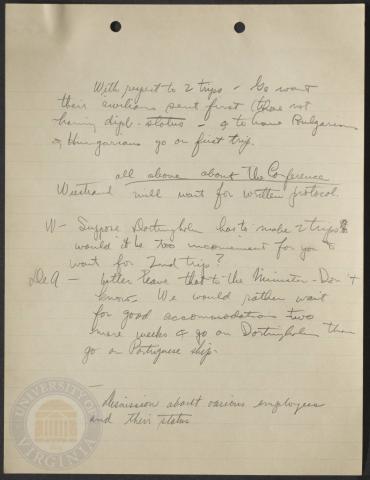 With respect to 2 trips - Ge want
their civilians sent first (those not
having dipl. status - & to have Bulgarians
& Hungarians go on first trip.
all above about the Conference
Westrand will wait for written protocol.
W - Suppose Drottningholm has to make 2 trips
would it be too inconvenient for you to
wait for 2nd trip?
DeA - better leave that to the Minister - Don't
know. We would rather wait
for good accommodations two
more weeks & go on Drottningholm than
go on Portuguese ship.
- Discussion about various employees
and their status
UNIVERSITY OF VIRGINIA